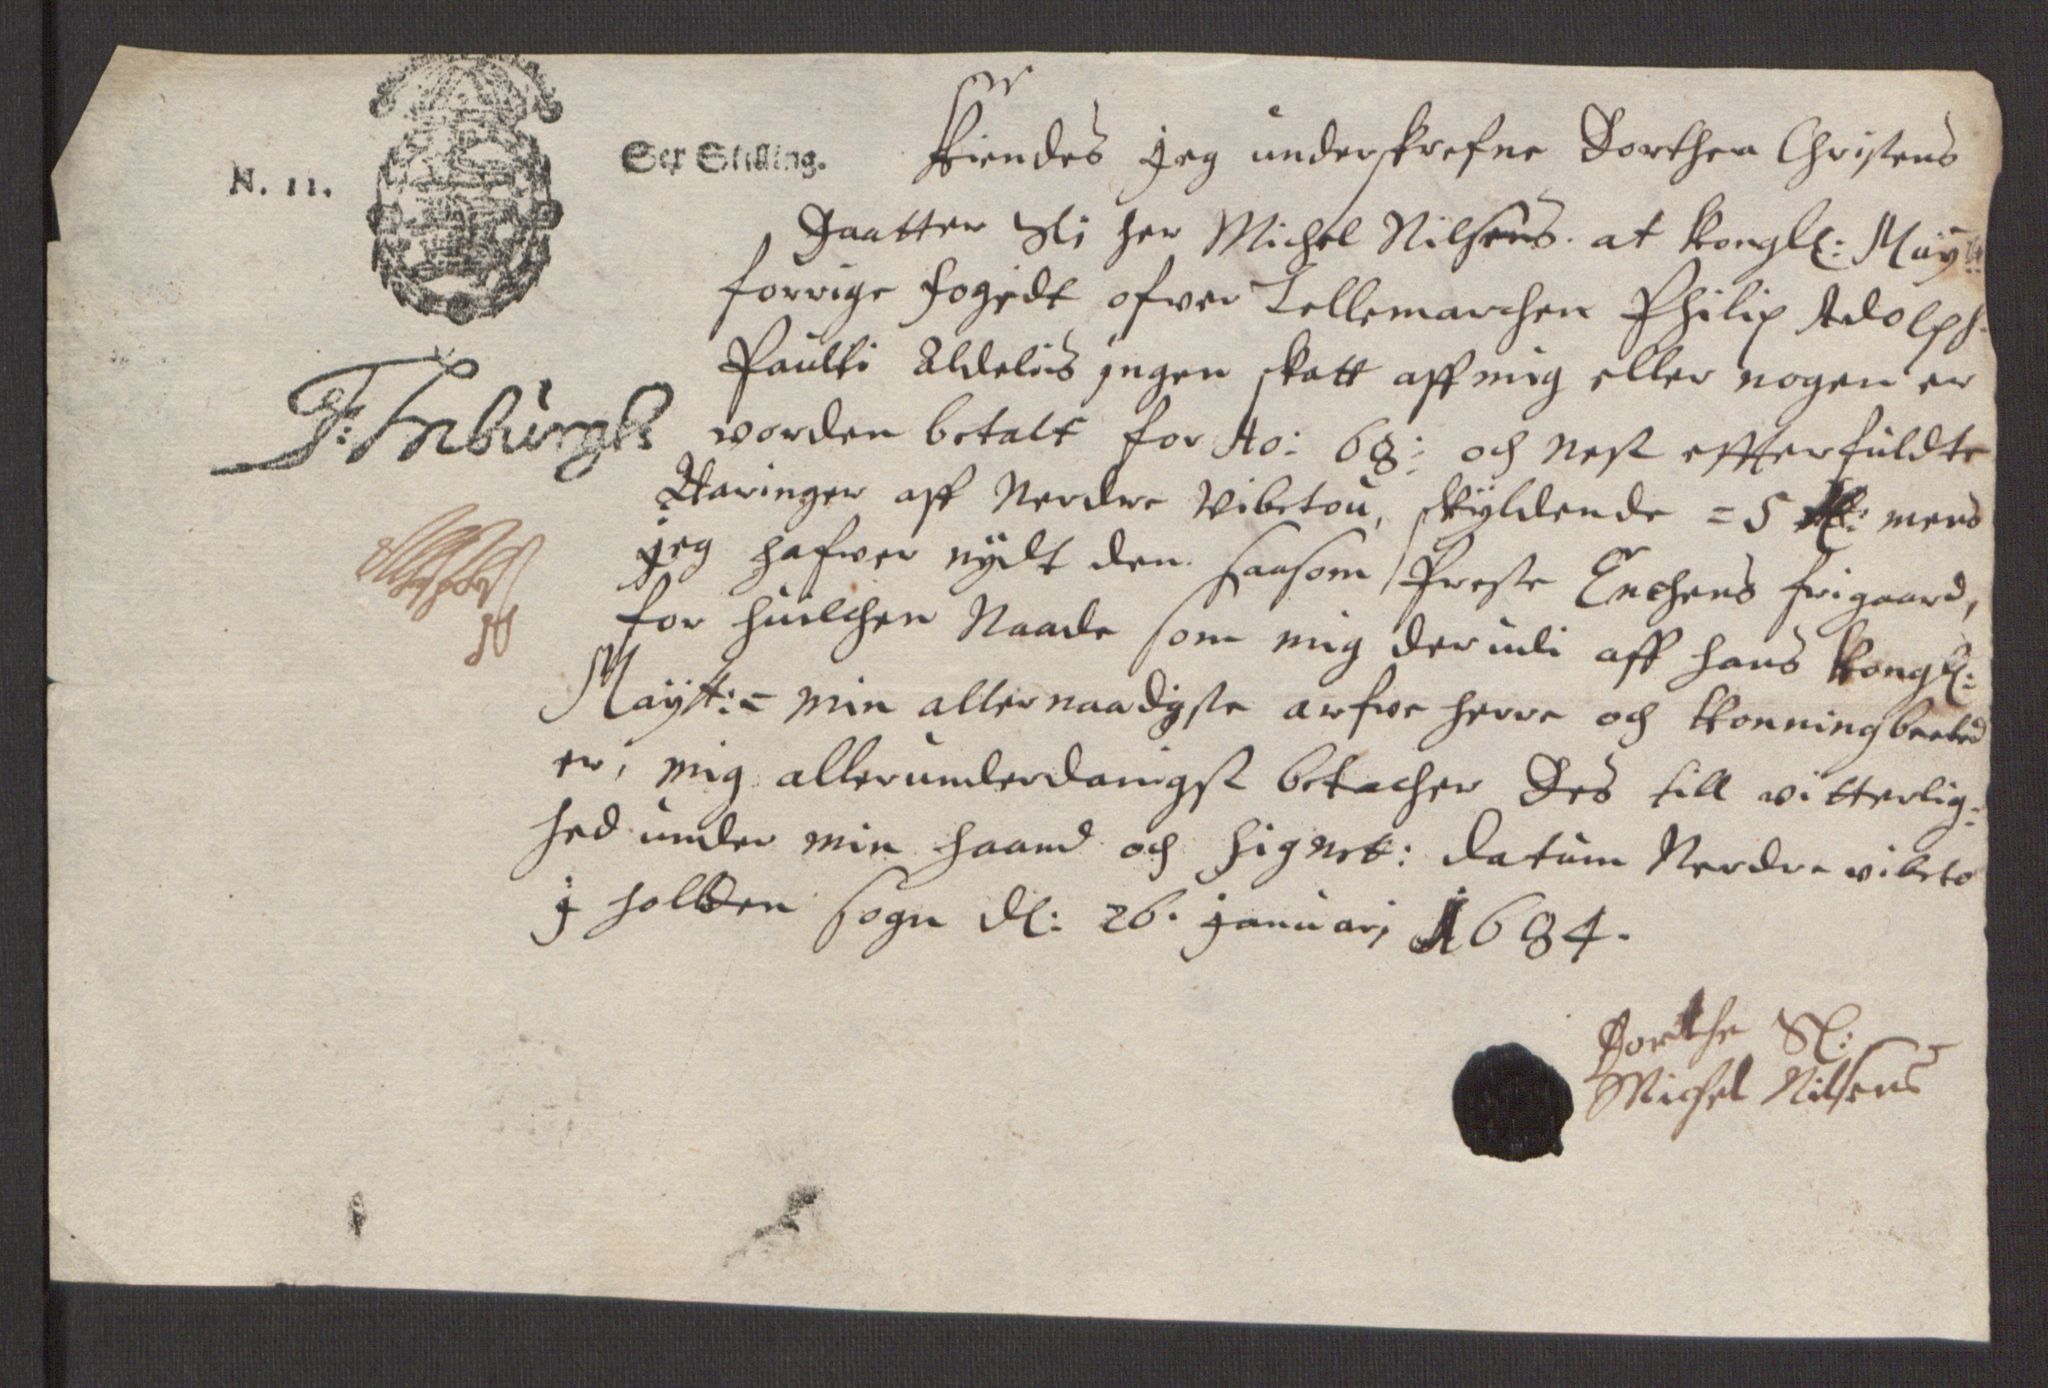 N. 11.
Sex Skilling.
Kiendes jeg underskrefne Dorthea Christens
Daatter Sl: her Michel Nilsens. at Kongl: Mäy:tt
forrige fogedt ofver Tellemarchen Philip Adolph
Paulli Aldelis jngen skatt aff mig eller nogen er
worden betalt for Ao: 68: och Nest effterfuldte
Aaringer aff Nerdre Vibetou, skÿldende = 5 mens
jeg hafwer nÿdt den saasom Preste Enchens frigaard,
for huilchen Naade som mig derudi aff hans Kongl:
Mäÿtt: = min allernaadigste arfwe herre och Konning beteed
er, mig allerunderdanigst betacher Des till vitterlig=
hed under min haand och Signet: Datum Nerdre vibeto
j holden Sogn dl: 26. januarj 1684.
Dorthe Sl:
Michel Nilsens